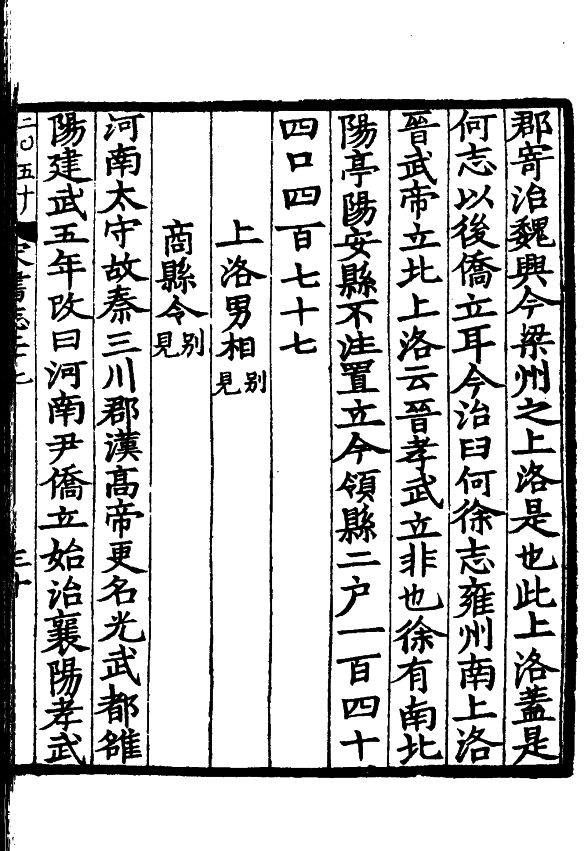 郡寄治魏興今梁州之上洛是也此上洛蓋是
何志以後僑立耳今治臼何徐志雍州南上洛
晉武帝立北上洛云晉孝武立非也徐有南北
陽亭陽安縣不注置立今領縣二户一百四十
四口四百七十七
上洛男相別見
商縣令別見
河南太守故秦三川郡漢髙帝更名光武都雒
陽建武五年改曰河南尹僑立始治襄陽孝武